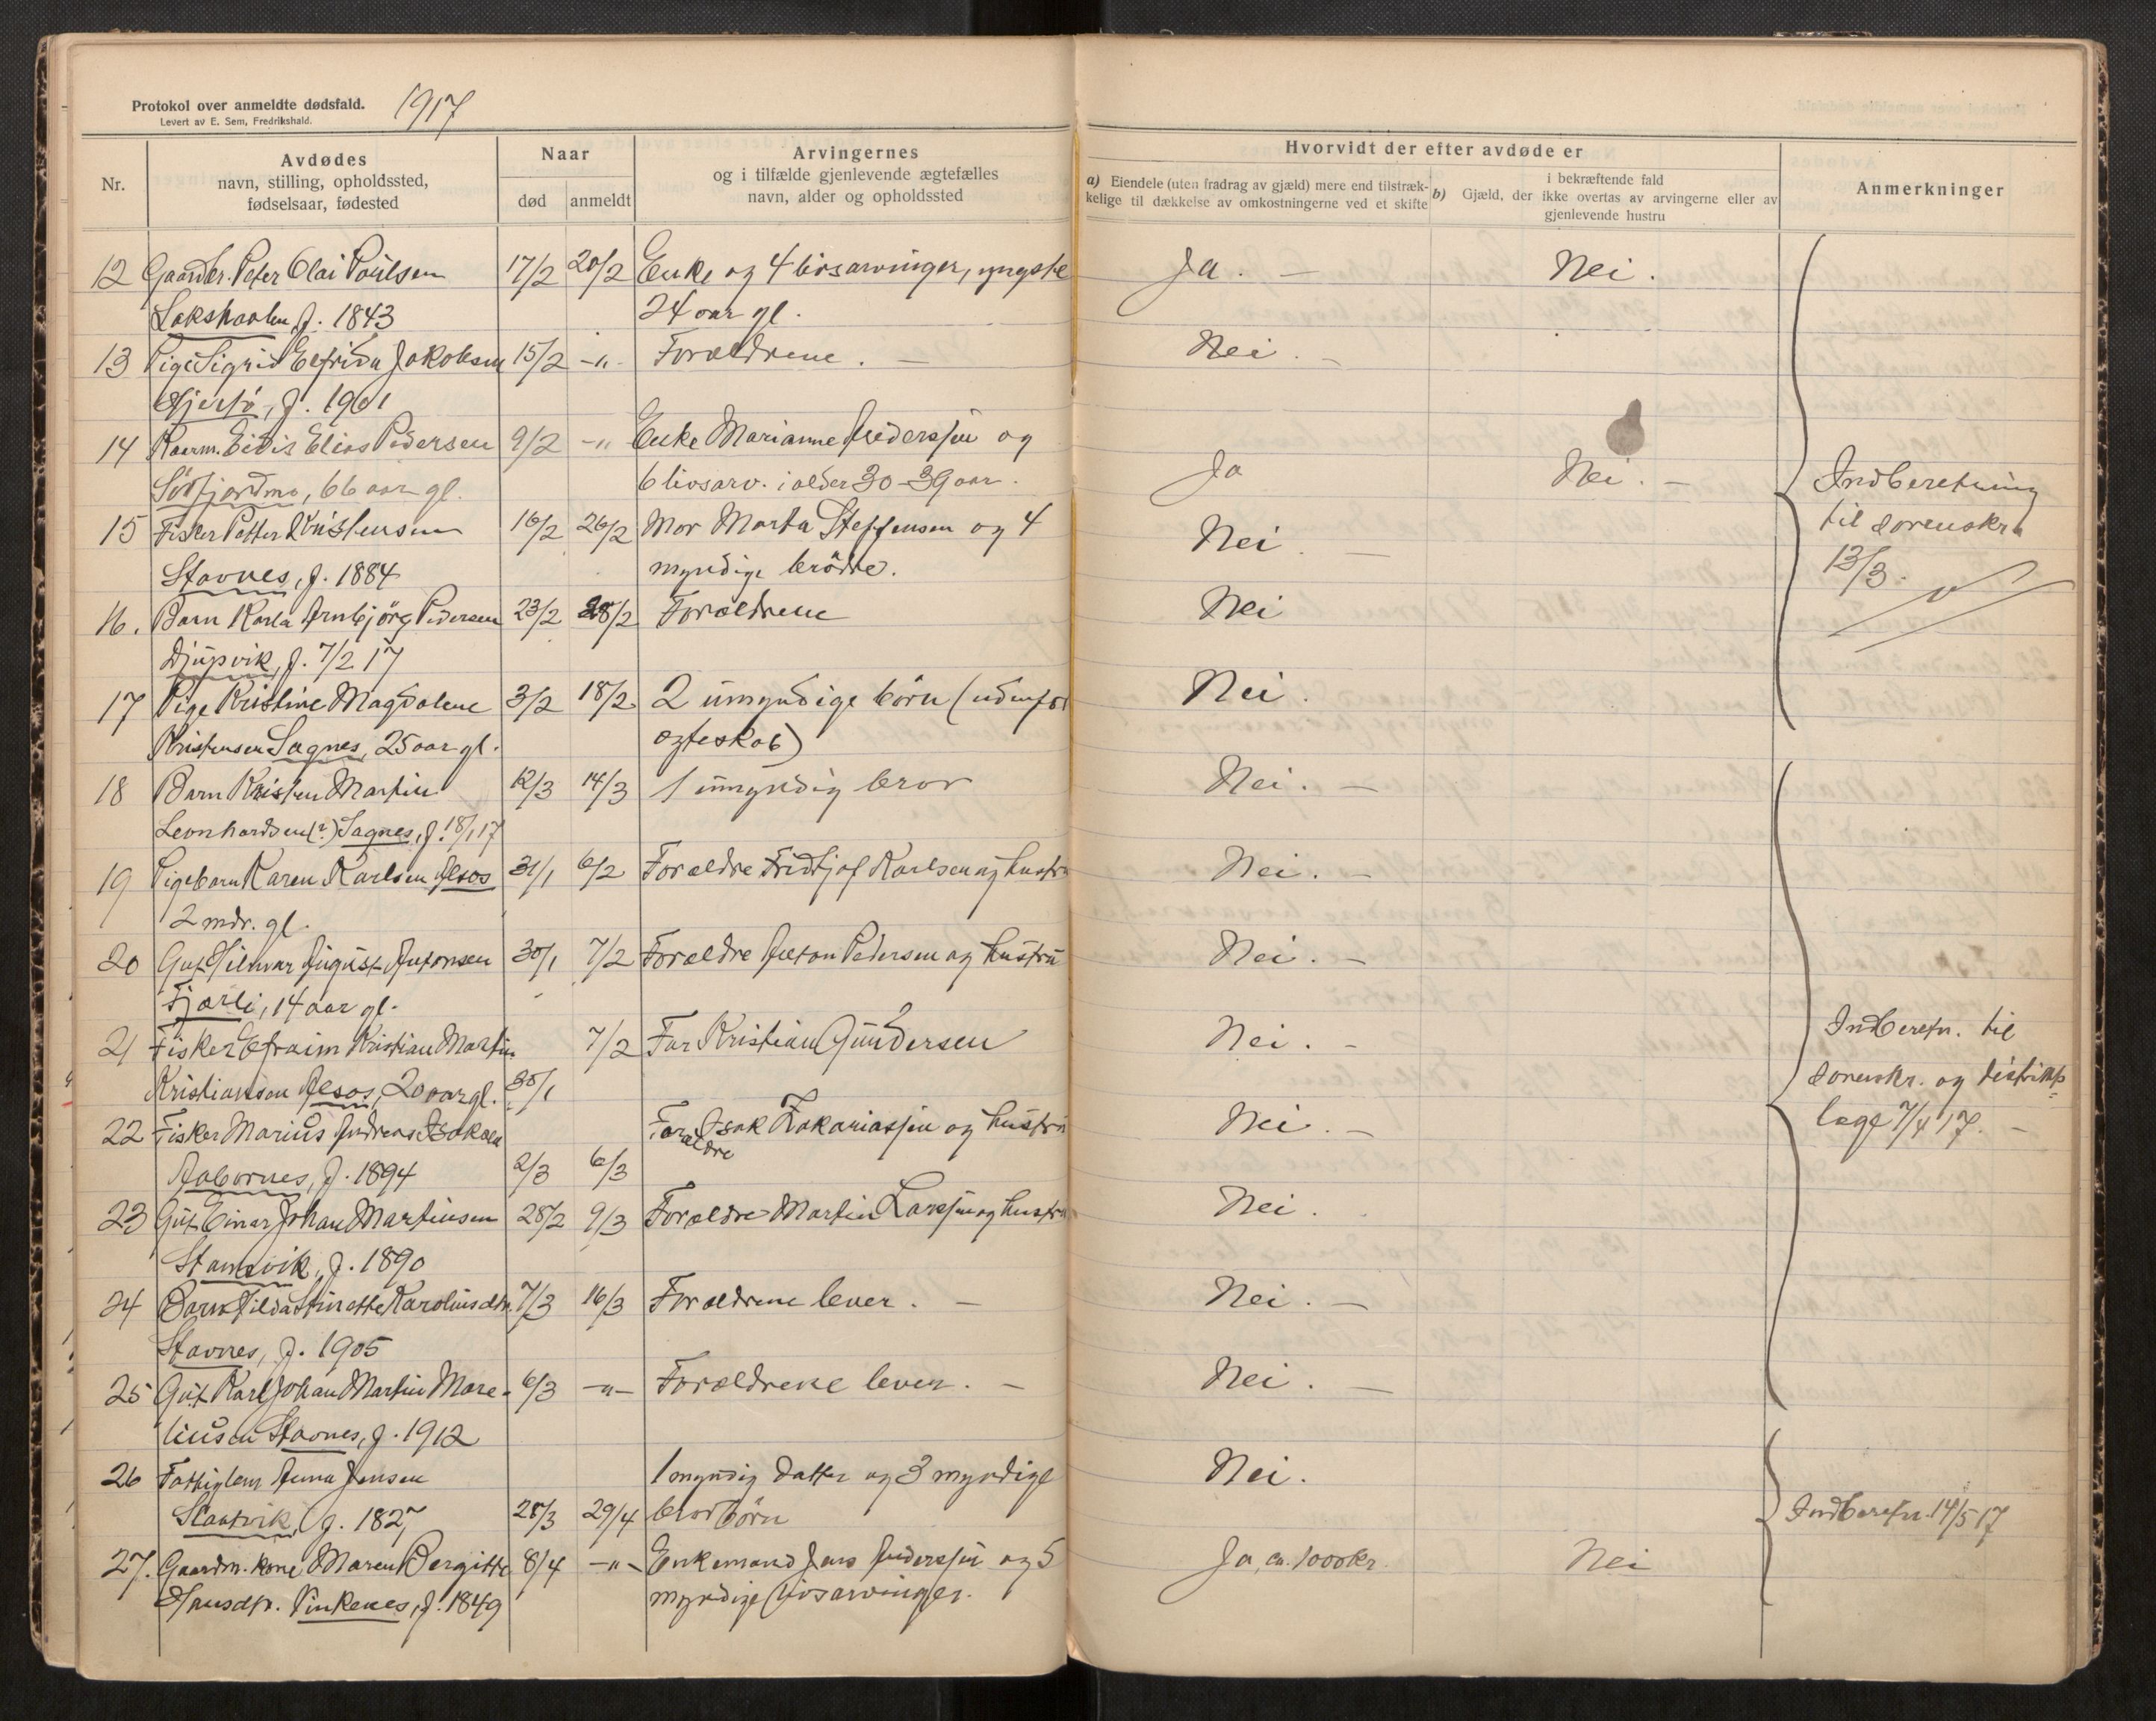 Protokol over anmeldte dødsfald. 1917
Levert av E. Sem, Fredrikshald.
Nr.
Avdødes
navn, stilling, opholdssted,
fødselsaar, fødested
Naar
død anmeldt
Arvingernes
og i tilfælde gjenlevende ægtefælles
navn, alder og opholdssted
Hvorvidt der efter avdøde er
a) Eiendele (uten fradrag av gjæld) mere end tilstræk-
kelige til dækkelse av omkostningerne ved et skifte
i bekræftende fald
b) Gjæld, der ikke overtas av arvingerne eller av
gjenlevende hustru
Anmerkninger
12 Gaardbr. Peter Olai Poulsen 17/2 20/2 Enke og 4 livsarvinger, yngste Ja. — Nei.
f. 1843 24 aar gl.
13 Pige Sigrid Elfrida Jakobsen 15/2 -"- Forældrene. — Nei. -
f. 1901
14 Elias Pedersen 9/2 -"- Enke Marianne Andersjen og
66 aar gl. 6 livsarv. i alder 30-39 aar. Ja Nei. -
15 Fisker Petter Kristensen 16/2 26/2 Mor Marta Steffensen og 4 Nei. —
Stavnes, f. 1884 myndige brödre.
16. Barn Karla Arnbjörg Pedersen 23/2 28/2 Forældrene Nei
Djupvik, f. 7/2 17
17 Pige Kristine Magdalene 3/2 18/2 2 umyndige börn (udenfor Nei.
Kristensen Sagnes, 25 aar gl. ægteskab)
Indberetning
til sorenskr.
13/3.
18 Barn Kristen Martin 12/3 14/3 1 umyndig bror Nei. —
Leonhardsen(?) Sagnes, f. 18/1 17
19 Pigebarn Karen Karlsen Alsos 31/1 6/2 Forældre Fridtjof Karlsen og hustru Nei. -
2 mdr. gl.
20 Gut Hilmar August Antonsen 30/1 7/2 Forældre Anton Pedersen og hustru Nei. -
Fjærli, 14 aar gl.
21 Fisker Efraim Kristian Martin 7/2 Far Kristian Gundersen Nei. -
Kristiansen Alsos, 20 aar gl. 30/1
22 Fisker Marius Andreas Isaksen Forældre Isak Zakariasjen og hustru Nei. -
Aabornes, f. 1894 2/3 6/3
23 Gut Einar Johan Martinsen 28/2 9/3 Forældre Martin Larsjen og hustru Nei.
f. 1890
24 Barn Karoliusdtr. 7/3 16/3 Forældrene lever. — Nei. —
Stavnes, f. 1905
25 Gut Karl Johan Martin Mare- 6/3 -"- Forældrene lever. — Nei. —
liusen Stavnes, f. 1912
Indberetn. til
sorenskr. og distrikts-
læge 7/4 17. —
26 Fattiglem Anna Jensen 1 myndig datter og 3 myndige Nei.
f. 1827 28/3 29/4 brorbörn
27. Gaardm. kone Maren Bergitte 8/4 -"- Enkemand Jens Andersjen og 5 Ja, ca. 1000 kr. Nei
Hansdtr. Vinkenes, f. 1849 myndige livsarvinger.
Indberetn. 14/5 17